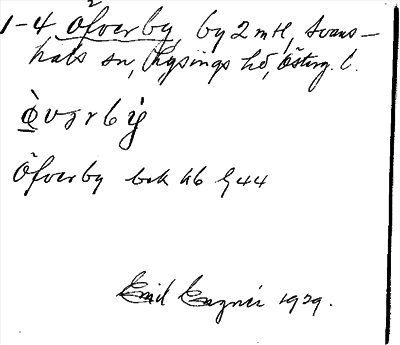 1-4 Öfverby, by 2 mtl, Svans-
hals sn, Lysings hd, Österg. l.
ö̀vərbý
Öfverby bsk hb 544
Emil 1929.